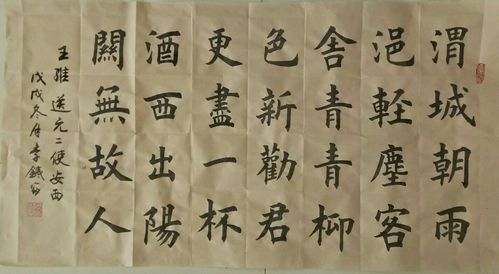 渭城朝雨
浥輕塵客
舎青青柳
色新勸君
更盡一杯
酒西出陽
關無故人
王維送元二使安西
戊戌冬月李鐵